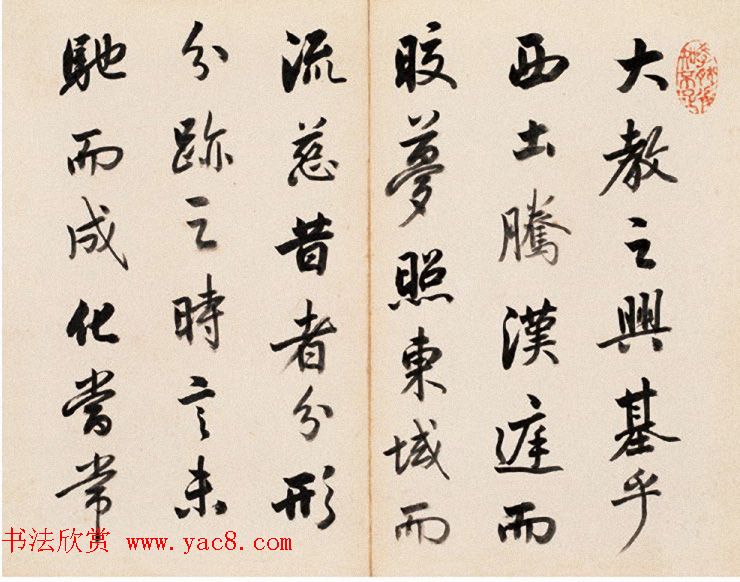 大教之興基乎
西土騰漢庭而
皎夢照東域而
流慈昔者分形
分跡之時言未
馳而成化當常
书法欣赏 www.yac8.com